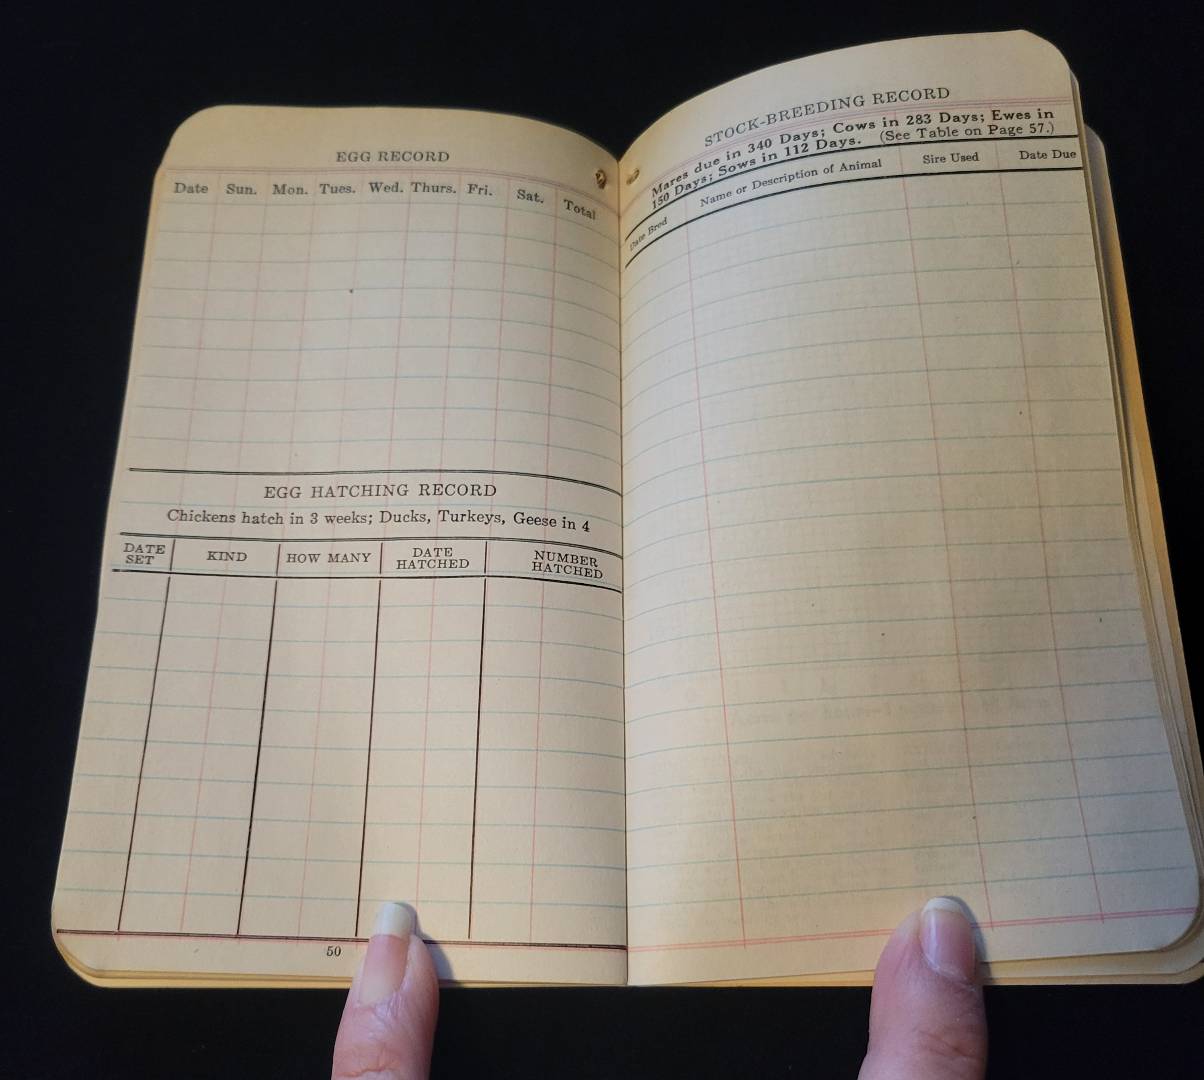 EGG RECORD
Date Sun. Mon. Tues. Wed. Thurs. Fri. Sat. Total
EGG HATCHING RECORD
Chickens hatch in 3 weeks; Ducks, Turkeys, Geese in 4
DATE SET KIND HOW MANY DATE HATCHED NUMBER HATCHED
50
STOCK-BREEDING RECORD
Mares due in 340 Days; Cows in 283 Days; Ewes in
150 Days; Sows in 112 Days. (See Table on Page 57.)
Date Bred Name or Description of Animal Sire Used Date Due